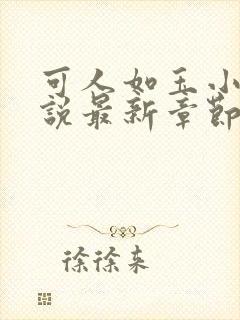 可人如玉小
說最新章節
徐徐来